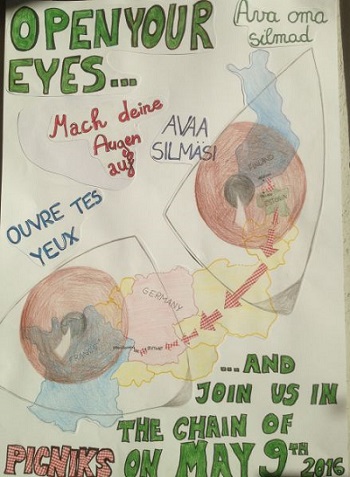 OPEN YOUR
EYES...
Ava oma
silmad
Mach deine
Augen
auf
AVAA
SILMÄSI
OUVRE TES
YEUX
FINLAND
GERMANY
FRANCE
...AND
JOIN US IN
THE CHAIN OF
PICNIKS ON MAY 9TH
2016